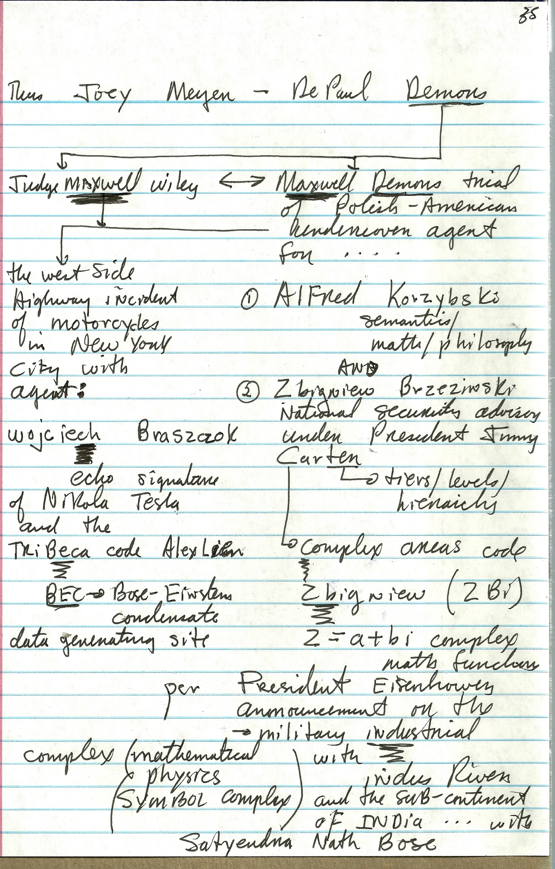 35
Thus Joey Meyen - DePaul Demons
Judge MAXWELL wiley ↔ Maxwell Demons trial
of Polish-American
undercover agent
for ....
the west side
Highway incident
of motorcycles
in New York
City with
agent:
① Alfred Korzybski
semantics/
math/philosophy
AND
② Zbigniew Brzezinski
National security advisor
under President Jimmy
Carter
→ tiers/levels/
hierarchy
wojciech Braszczok
echo signature
of Nikola Tesla
and the
TRiBeca code Alex Lien
BEC → Bose-Einstein
condensate
data generating site
→ complex areas code
Zbigniew (ZBi)
Z = a+bi complex
math functions
per President Eisenhower
announcement on the
→ military industrial
complex (mathematical
physics
Symbol complex)
with
indus River
and the sub-continent
of INDia ... with
Satyendra Nath Bose